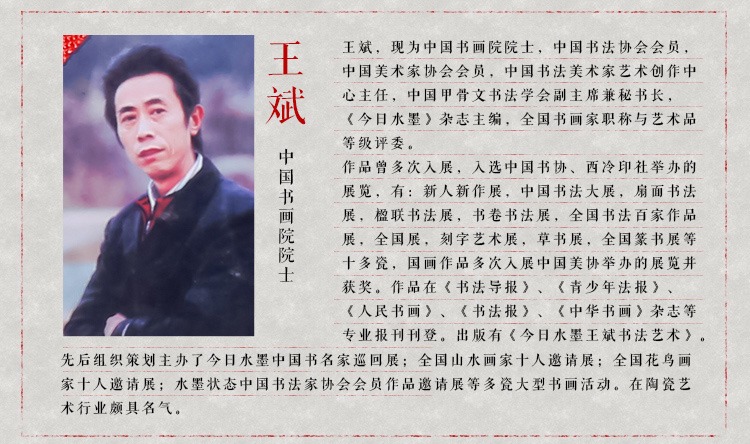 王斌
中国书画院院士
王斌，现为中国书画院院士，中国书法协会会员，
中国美术家协会会员，中国书法美术家艺术创作中
心主任，中国甲骨文书法学会副主席兼秘书长，
《今日水墨》杂志主编，全国书画家职称与艺术品
等级评委。
作品曾多次入展，入选中国书协、西冷印社举办的
展览，有：新人新作展，中国书法大展，扇面书法
展，楹联书法展，书卷书法展，全国书法百家作品
展，全国展，刻字艺术展，草书展，全国篆书展等
十多瓷，国画作品多次入展中国美协举办的展览并
获奖。作品在《书法导报》、《青少年法报》、
《人民书画》、《书法报》、《中华书画》杂志等
专业报刊刊登。出版有《今日水墨王斌书法艺术》。
先后组织策划主办了今日水墨中国书名家巡回展；全国山水画家十人邀请展；全国花鸟画
家十人邀请展；水墨状态中国书法家协会会员作品邀请展等多瓷大型书画活动。在陶瓷艺
术行业颇具名气。